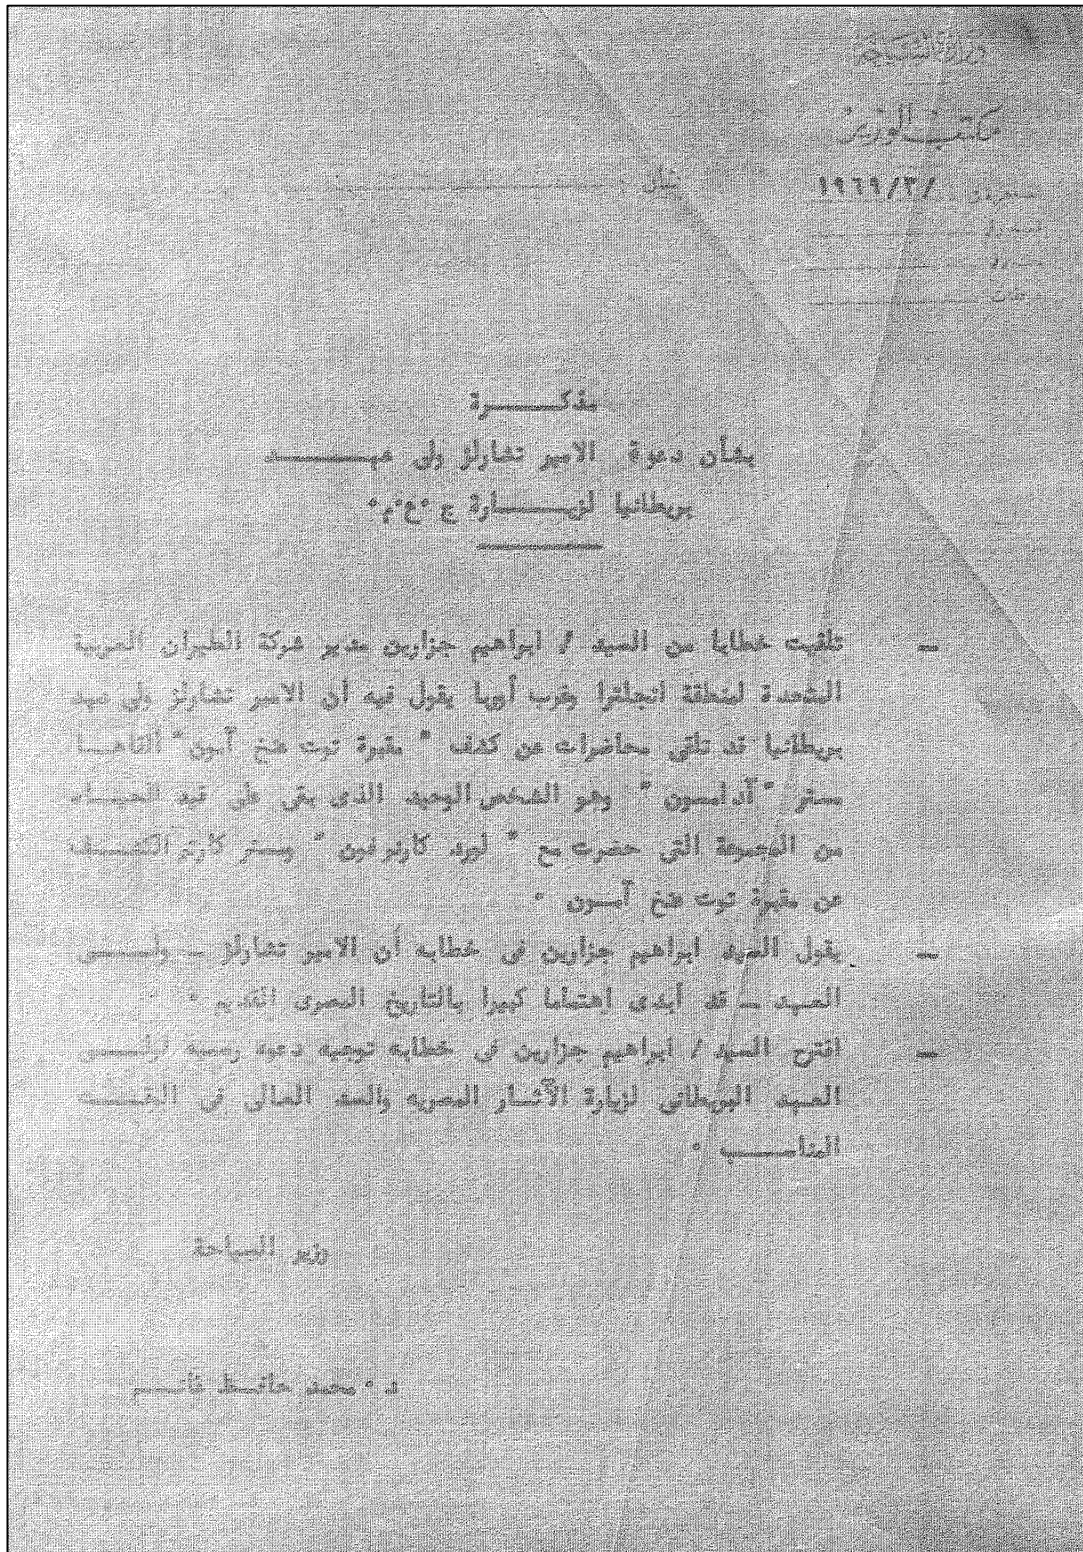 وزارة السياحة
مكتب الوزير
١٩٦٩/٣/
بشأن
مذكـــــرة
بشأن دعوة الامير تشارلز ولى عهـــــد
بريطانيا لزيـــــارة ج ٠ع٠م٠
ـ تلقيت خطابا من السيد / ابراهيم جزارين مدير شركة الطيران العربية
المتحدة لمنطقة انجلترا وغرب أوربا يقول فيه أن الامير تشارلز ولى عهد
بريطانيا قد تلقى محاضرات عن كشف " مقبرة توت عنخ آمون " ألقاهــا
مستر " آدامسون " وهو الشخص الوحيد الذى بقى على قيد الحيــاه
من المجموعة التى حضرت مع " لورد كارنرفون " ومستر كارتر الكشــف
عن مقبرة توت عنخ آمــون ٠
ـ يقول السيد ابراهيم جزارين فى خطابه أن الامير تشارلز ـ ولـــى
العهد ـ قد أبدى اهتماما كبيرا بالتاريخ المصرى القديم ٠
ـ اقترح السيد / ابراهيم جزارين فى خطابه توجيه دعوه رسمية لولـــى
العهد البريطانى لزيارة الآثــار المصريه والسد العالى فى
المناســـب ٠
وزير السياحة
د ٠ محمد حافــظ غانـــم